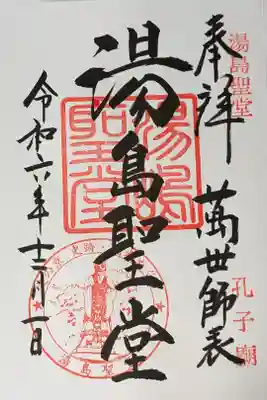 湯島聖堂
奉拝 萬世師表
孔子廟
湯島聖堂
湯島聖堂
令和六年十二月一日
湯島聖堂